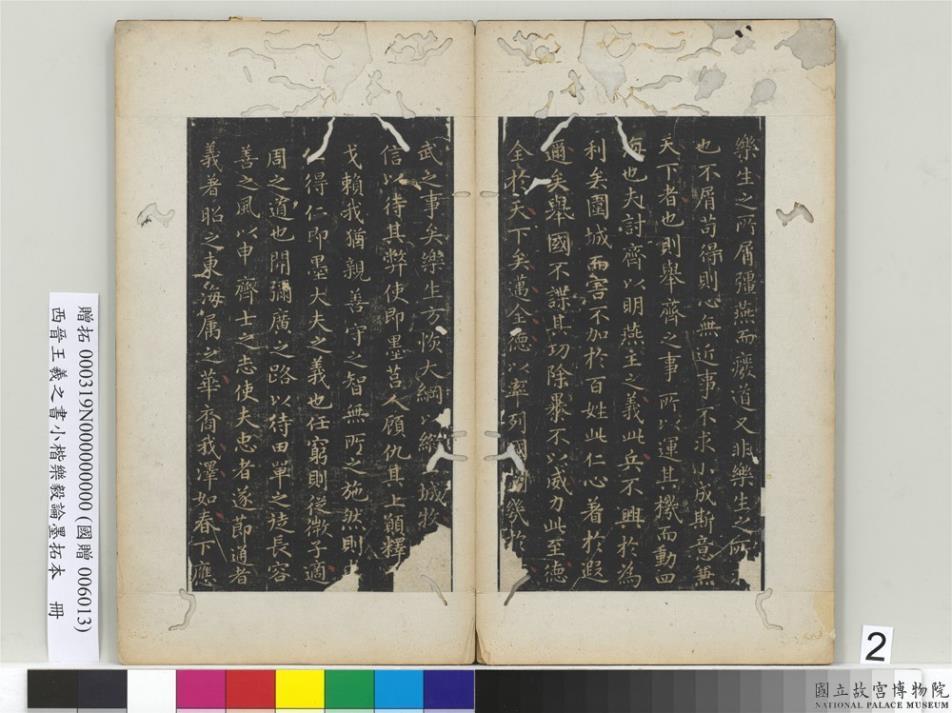 樂生之所屑彊燕而廢道又非樂生之所
也不屑苟得則心無近事不求小成斯意兼
天下者也則舉齊之事所以運其機而動四
海也夫討齊以明燕主之義此兵不興於為
利矣圍城而害不加於百姓此仁心著於遐
邇矣舉國不謀其功除暴不以威力此至德
全於天下矣邁全德以率列國 幾於
武之事矣樂生方恢大綱以縱 城牧
信以待其弊使即墨莒人顧仇其上願釋
戈賴我猶親善守之智無所之施然則
得仁即墨大夫之義也任窮則從微子適
周之道也開彌廣之路以待田單之徒長容
善之風以申齊士之志使夫忠者遂節道者
義著昭之東海属之華裔我澤如春下應
贈拓 000319N000000000 (國贈 006013)
西晉王羲之書小楷樂毅論墨拓本 冊
2
國立故宮博物院
NATIONAL PALACE MUSEUM